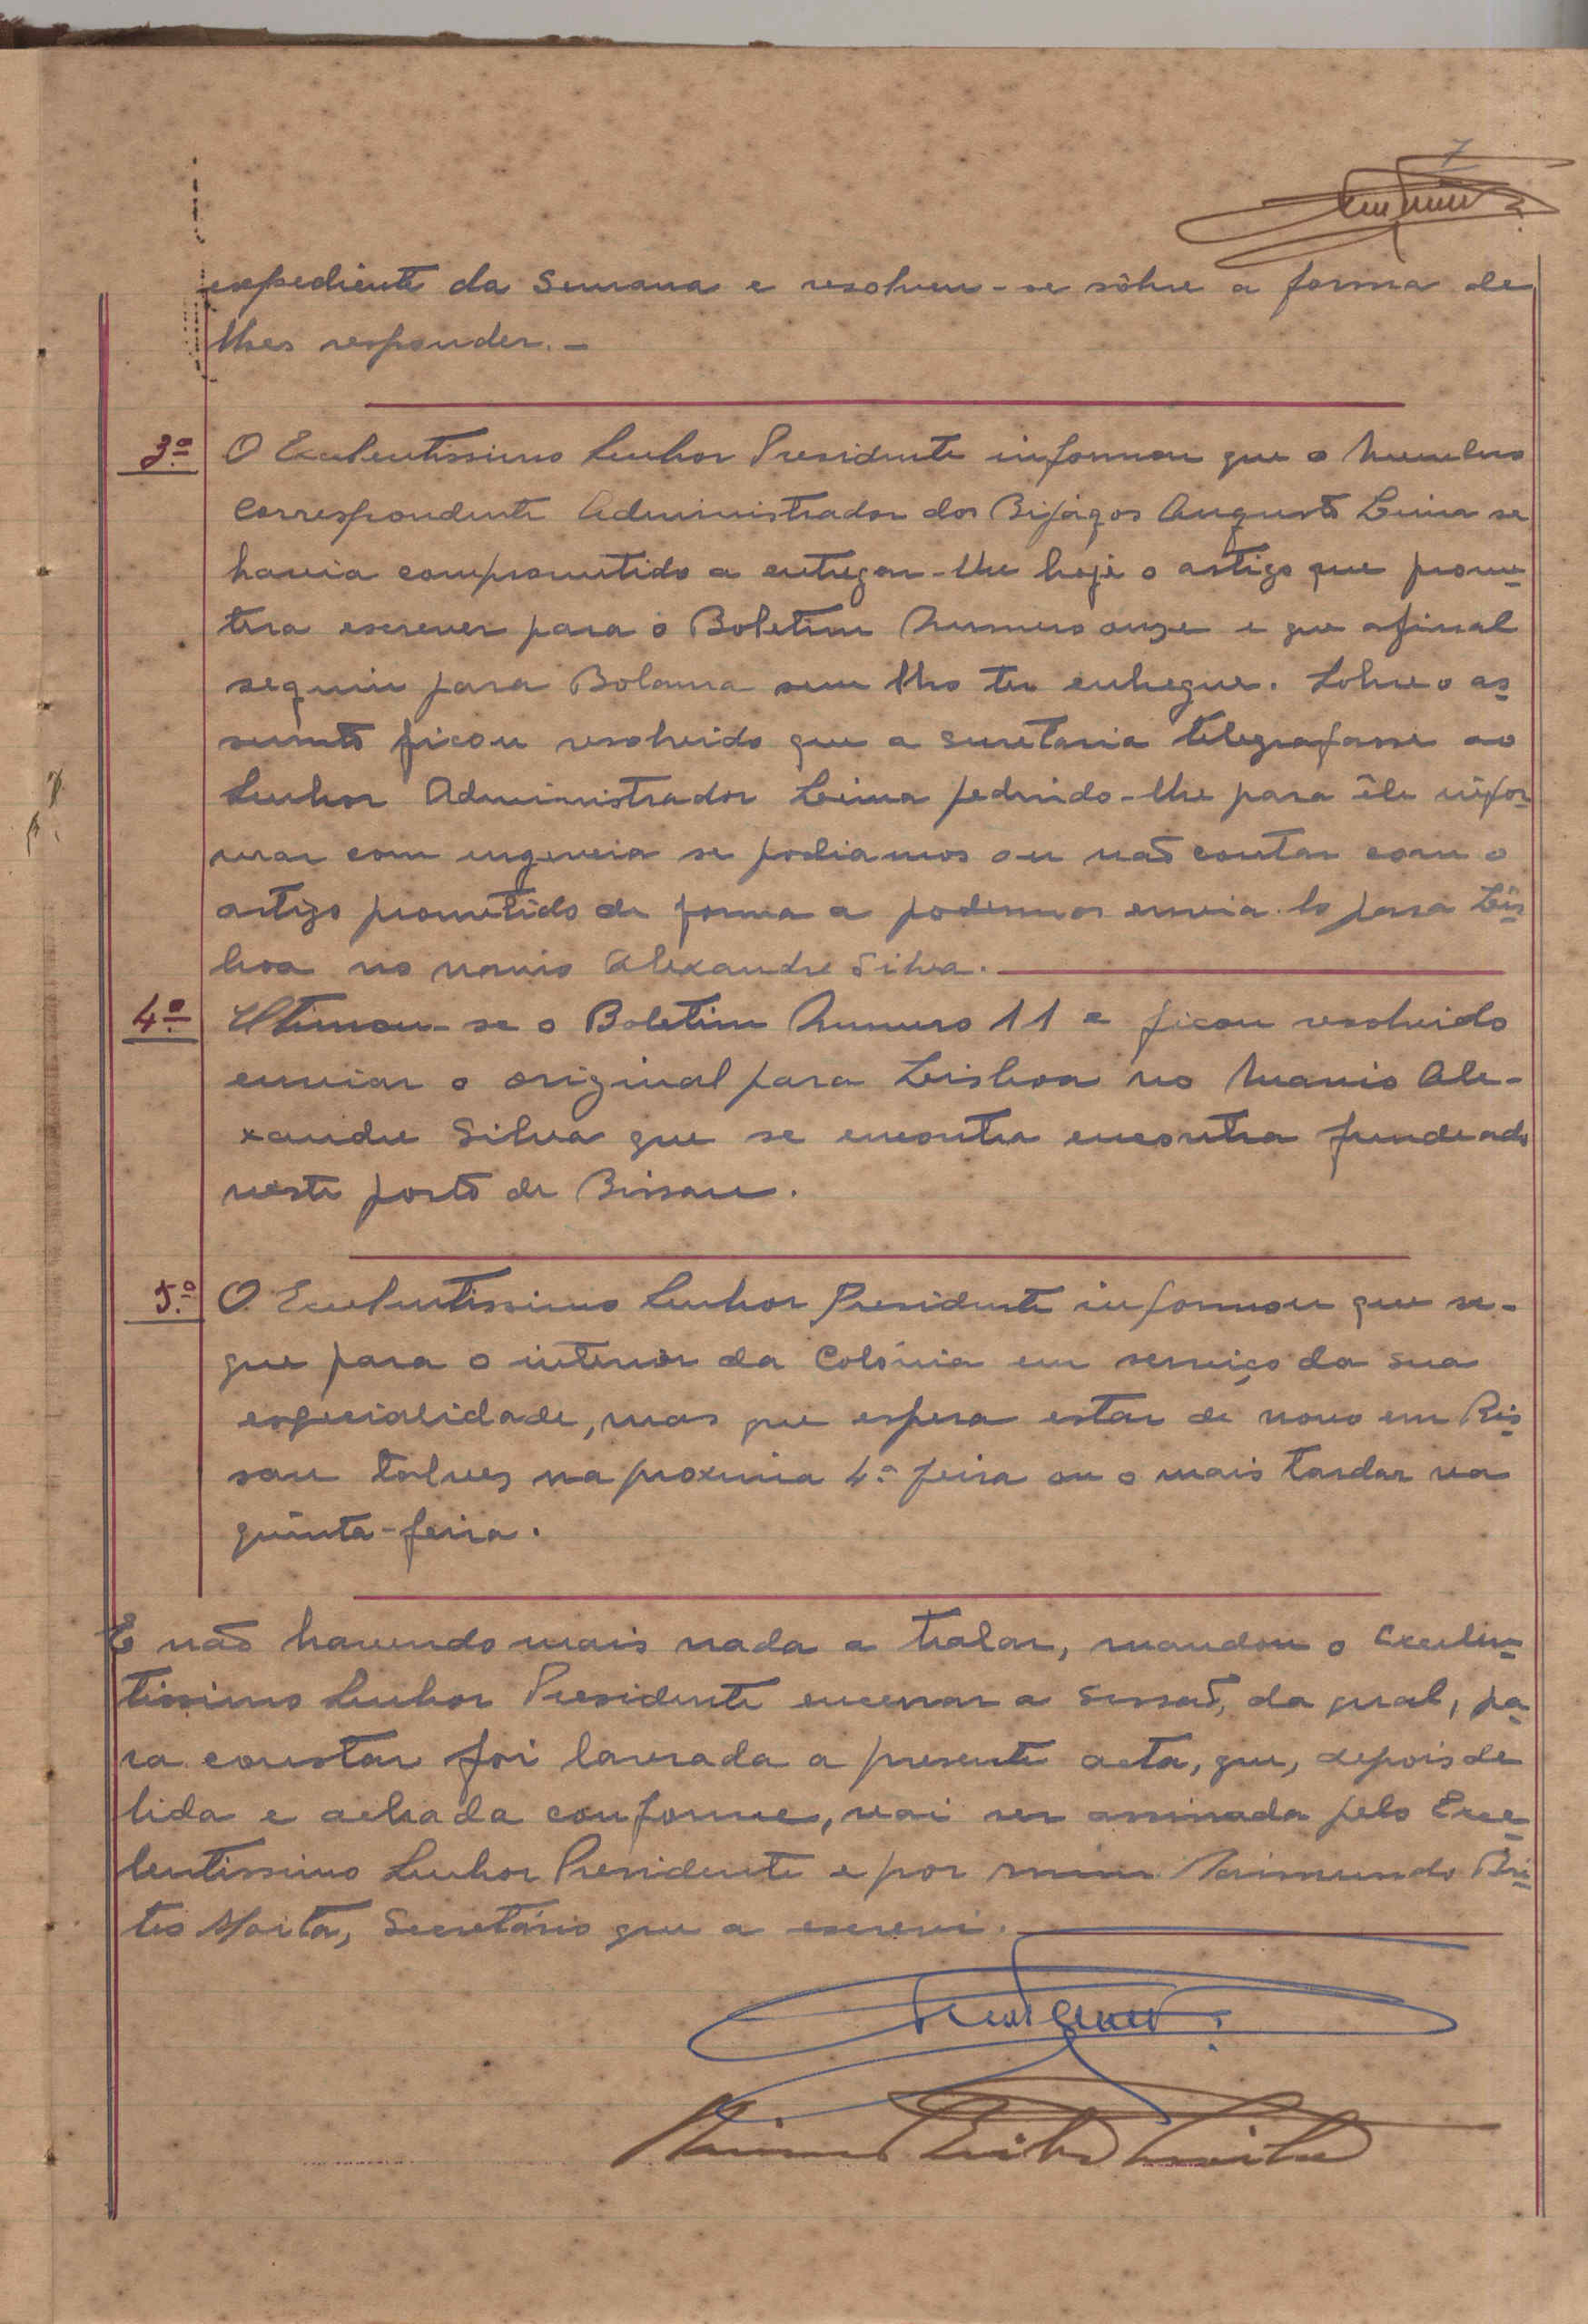 7
expediente da Semana e resolveu-se sôbre a forma de
lhes responder. -
3º O Excelentissimo Senhor Presidente informou que o Membro
Correspondente Administrador dos Bijágos Augusto Lima se
havia comprometido a entregar-lhe hoje o artigo que prome-
tera escrever para o Boletim Numero onze e que afinal
seguiu para Bolama sem lho ter enhegue. Sobre o as-
sunto ficou resolvido que a secretaria telegrafasse ao
Senhor Administrador Lima pedindo-lhe para êle infor-
mar com urgencia se podiamos ou não contar com o
artigo prometido de forma a podermos envia-lo para Lis-
boa no navio Alexandre Silva.
4º Ultimou-se o Boletim Numero 11 e ficou resolvido
enviar o original para Lisboa no Navio Ale-
xandre Silva que se encontra encontra fundeado
neste porto de Bissau.
5.º O Excelentissimo Senhor Presidente informou que se-
gue para o interior da Colónia em serviço da sua
especialidade, mas que espera estar de novo em Bis-
sau talvez na proxima 4.ª feira ou o mais tardar na
quinta-feira.
E não havendo mais nada a tratar, mandou o Excelen-
tissimo Senhor Presidente encerrar a sessão, da qual, pa-
ra constar foi lavrada a presente acta, que, depois de
lida e achada conforme, vai ser assinada pelo Exce-
lentissimo Senhor Presidente e por mim Raimundo Bri-
tes Moita, Secretário que a escrevi.